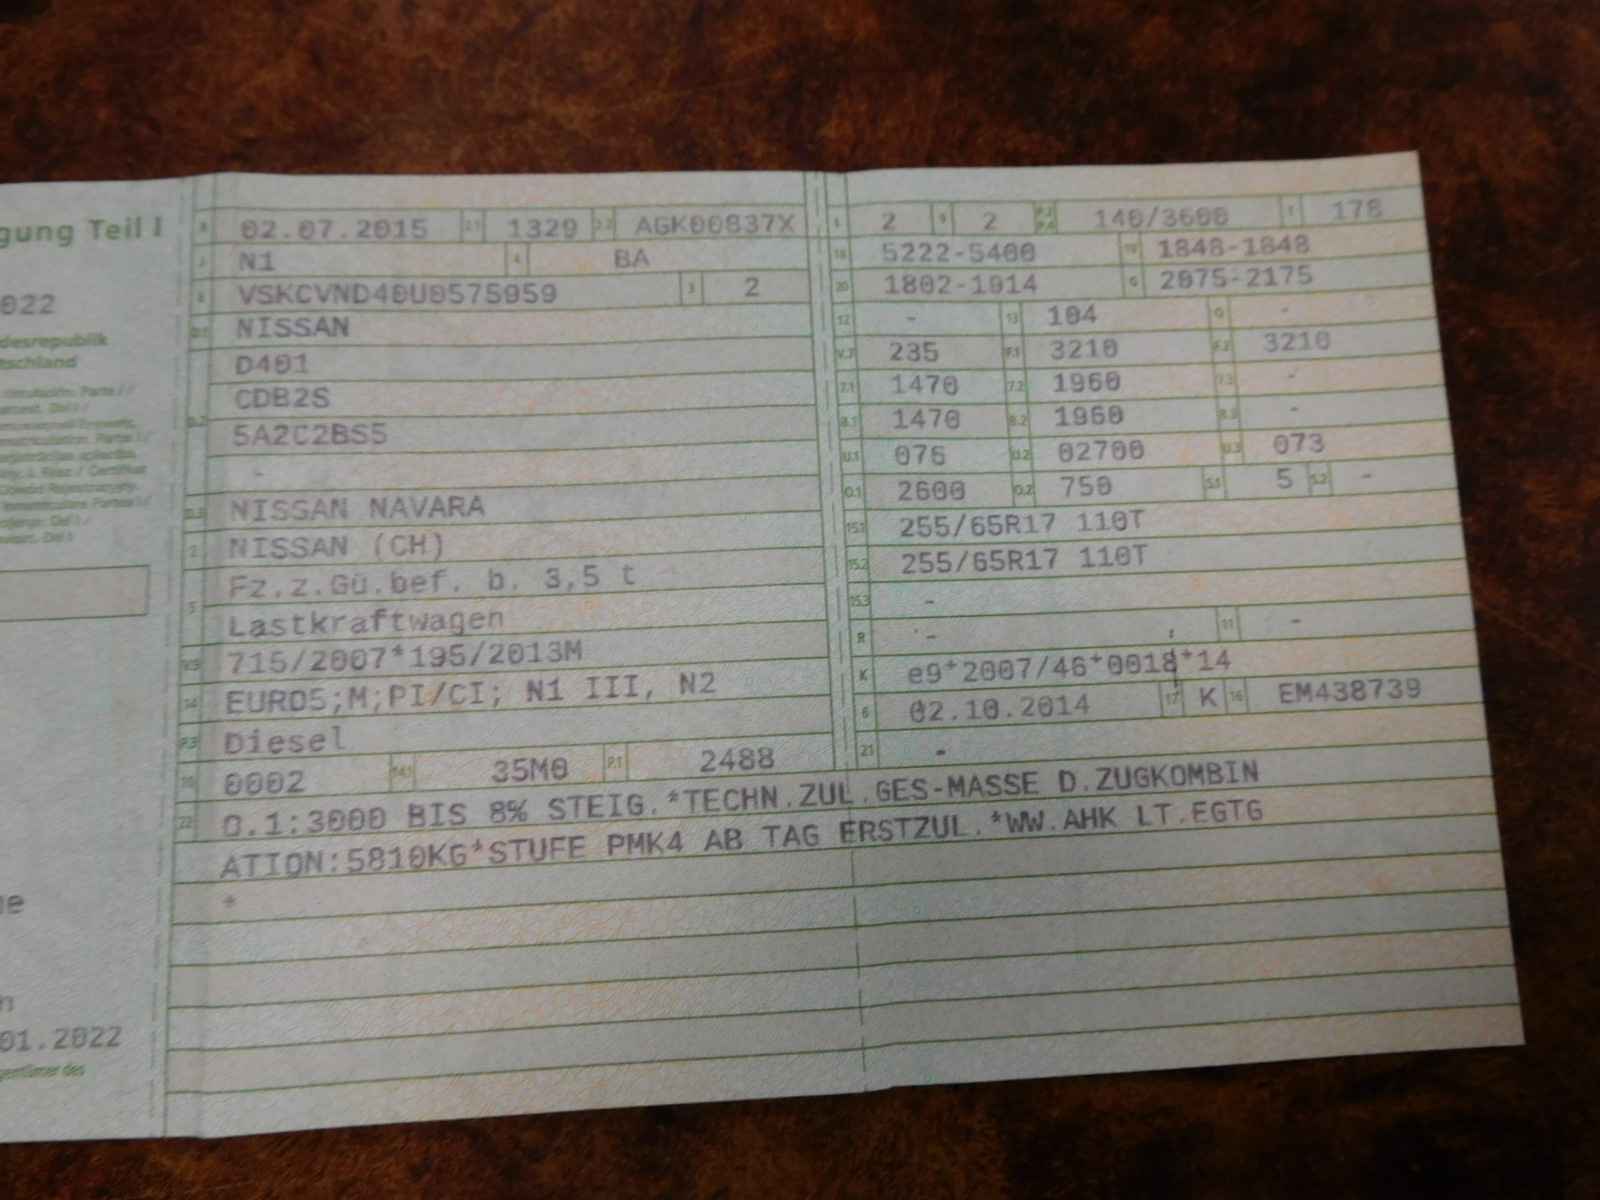 gung Teil I
022
desrepublik
tschland
ne
n
01.2022
B 02.07.2015 2.1 1329 2.2 AGK00837X
J N1 4 BA
E VSKCVND40U0575959 3 2
D.1 NISSAN
D401
D.2 CDB2S
5A2C2BS5
-
D.3 NISSAN NAVARA
2 NISSAN (CH)
5 Fz.z.Gü.bef. b. 3,5 t
Lastkraftwagen
V.9 715/2007*195/2013M
14 EURO5;M;PI/CI; N1 III, N2
P.3 Diesel
10 0002 14.1 35M0 P.1 2488
2 9 2 P.2 P.4 140/3600 T 170
18 5222-5400 19 1848-1848
20 1802-1914 G 2075-2175
12 - 13 104 Q -
V.7 235 F.1 3210 F.2 3210
7.1 1470 7.2 1960 7.3 -
8.1 1470 8.2 1960 8.3 -
U.1 076 U.2 02700 U.3 073
O.1 2600 O.2 750 S.1 5 S.2 -
15.1 255/65R17 110T
15.2 255/65R17 110T
15.3 -
R - 11 -
K e9*2007/46*0018*14
6 02.10.2014 17 K 16 EM438739
21 -
22 O.1:3000 BIS 8% STEIG.*TECHN.ZUL.GES-MASSE D.ZUGKOMBIN
ATION:5810KG*STUFE PMK4 AB TAG ERSTZUL.*WW.AHK LT.EGTG
*